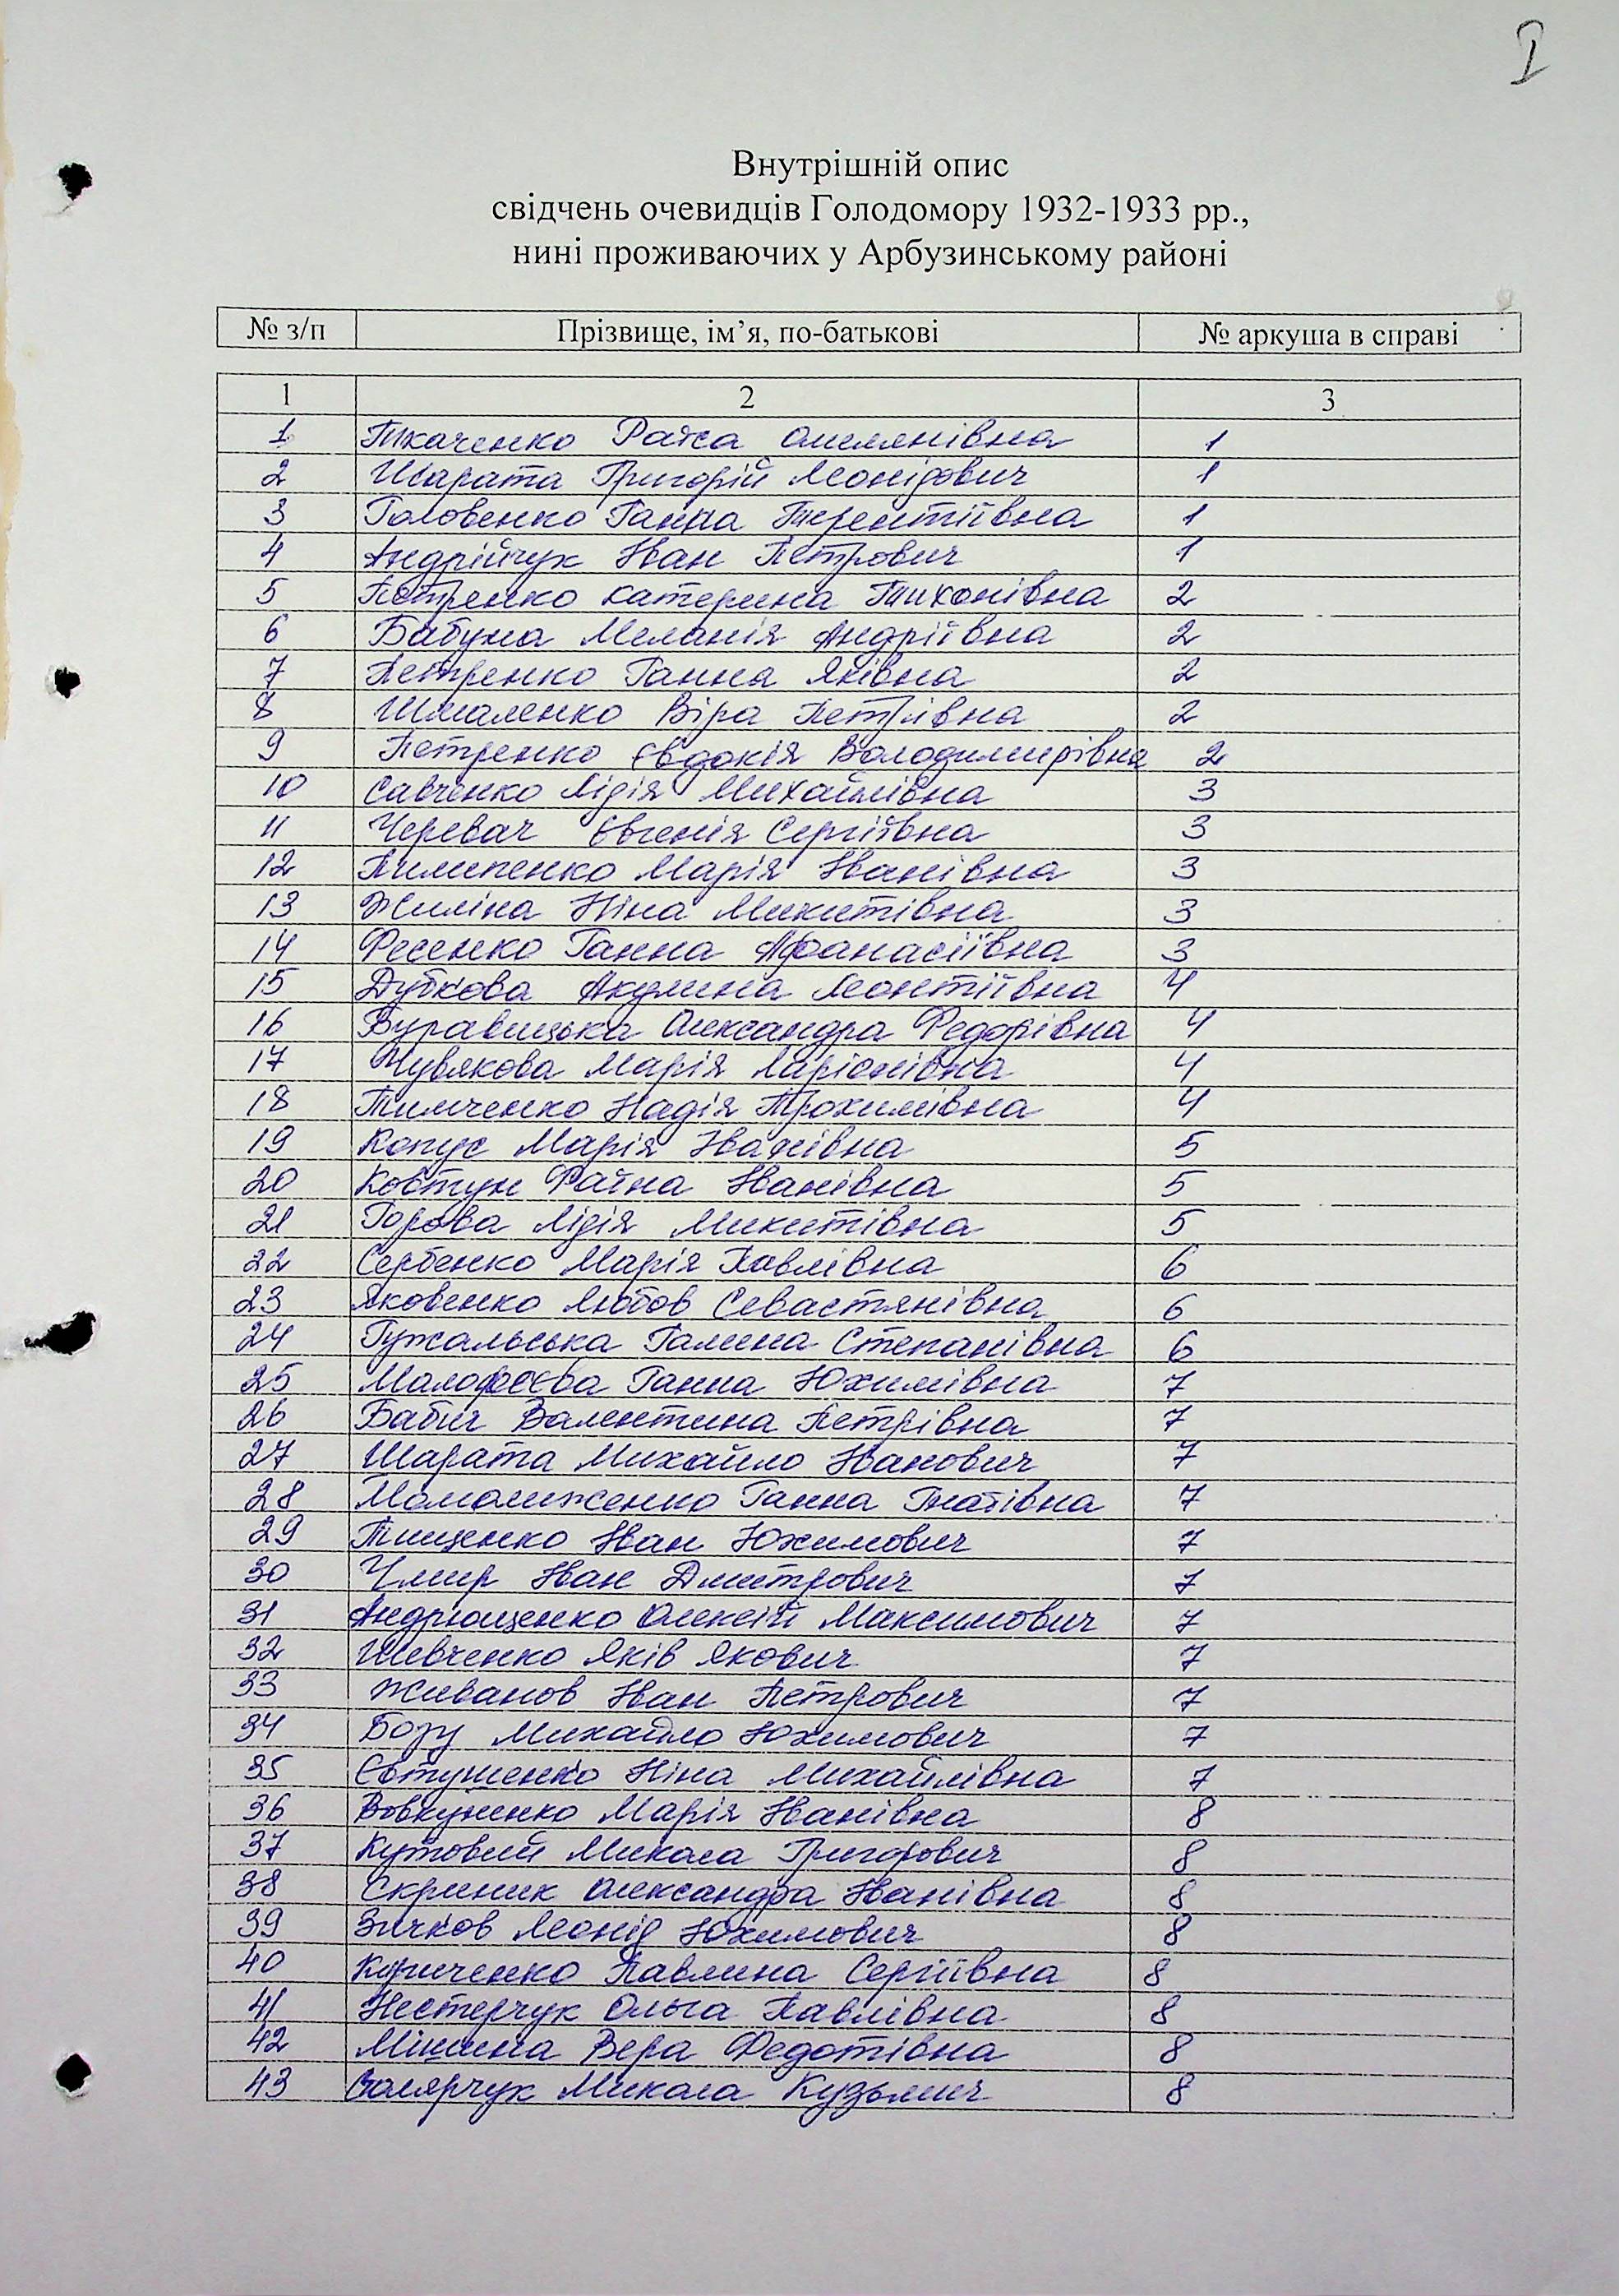 I
Внутрішній опис
свідчень очевидців Голодомору 1932-1933 рр.,
нині проживаючих у Арбузинському районі
№ з/п Прізвище, ім’я, по-батькові № аркуша в справі
1 2 3
1 Ткаченко Раїса Омелянівна 1
2 Шарата Григорій Леонідович 1
3 Головенко Ганна Терентіївна 1
4 Андрійчук Іван Петрович 1
5 Петренко Катерина Тихонівна 2
6 Бабуна Меланія Андріївна 2
7 Петренко Ганна Яківна 2
8 Шмаленко Віра Петрівна 2
9 Петренко Євдокія Володимирівна 2
10 Савченко Лідія Михайлівна 3
11 Черевач Євгенія Сергіївна 3
12 Пилипенко Марія Іванівна 3
13 Жиліна Ніна Микитівна 3
14 Фесенко Ганна Афанасіївна 3
15 Дубкова Акулина Леонтіївна 4
16 Буравицька Олександра Федорівна 4
17 Чувякова Марія Ларіонівна 4
18 Тимченко Надія Трохимівна 4
19 Копус Марія Іванівна 5
20 Ковтун Раїна Іванівна 5
21 Горова Лідія Микитівна 5
22 Сербенко Марія Павлівна 6
23 Яковенко Любов Севастянівна 6
24 Гужальська Галина Степанівна 6
25 Малофєєва Ганна Юхимівна 7
26 Бабич Валентина Петрівна 7
27 Шарата Михайло Іванович 7
28 Мамалиженко Ганна Гнатівна 7
29 Тищенко Іван Юхимович 7
30 Чмир Іван Дмитрович 7
31 Андрющенко Олексій Максимович 7
32 Шевченко Яків Якович 7
33 Живанов Іван Петрович 7
34 Бозу Михайло Юхимович 7
35 Євтушенко Ніна Михайлівна 7
36 Вовкуненко Марія Іванівна 8
37 Кутовий Микола Григорович 8
38 Скриник Олександра Іванівна 8
39 Зичков Леонід Юхимович 8
40 Кириченко Павлина Сергіївна 8
41 Нестерчук Ольга Павлівна 8
42 Мішина Вера Федотівна 8
43 Столярчук Микола Кузьмич 8